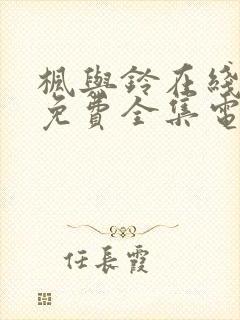 楓與鈴在綫
免費全集電
任長霞